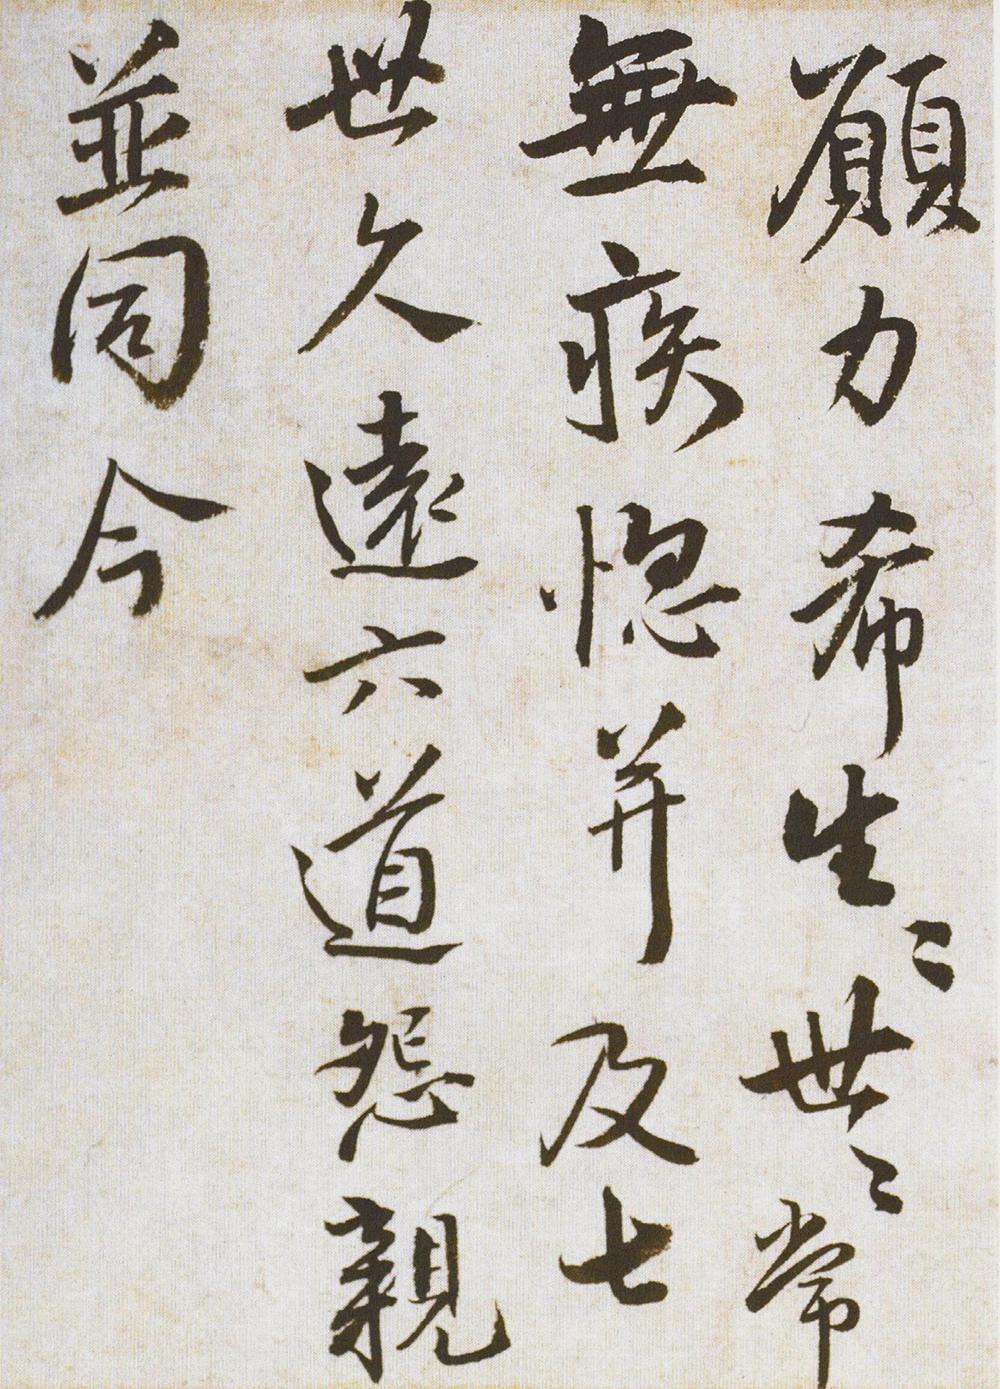 願力希生〻世〻常
無疾惱并及七
世久遠六道怨親
並同今